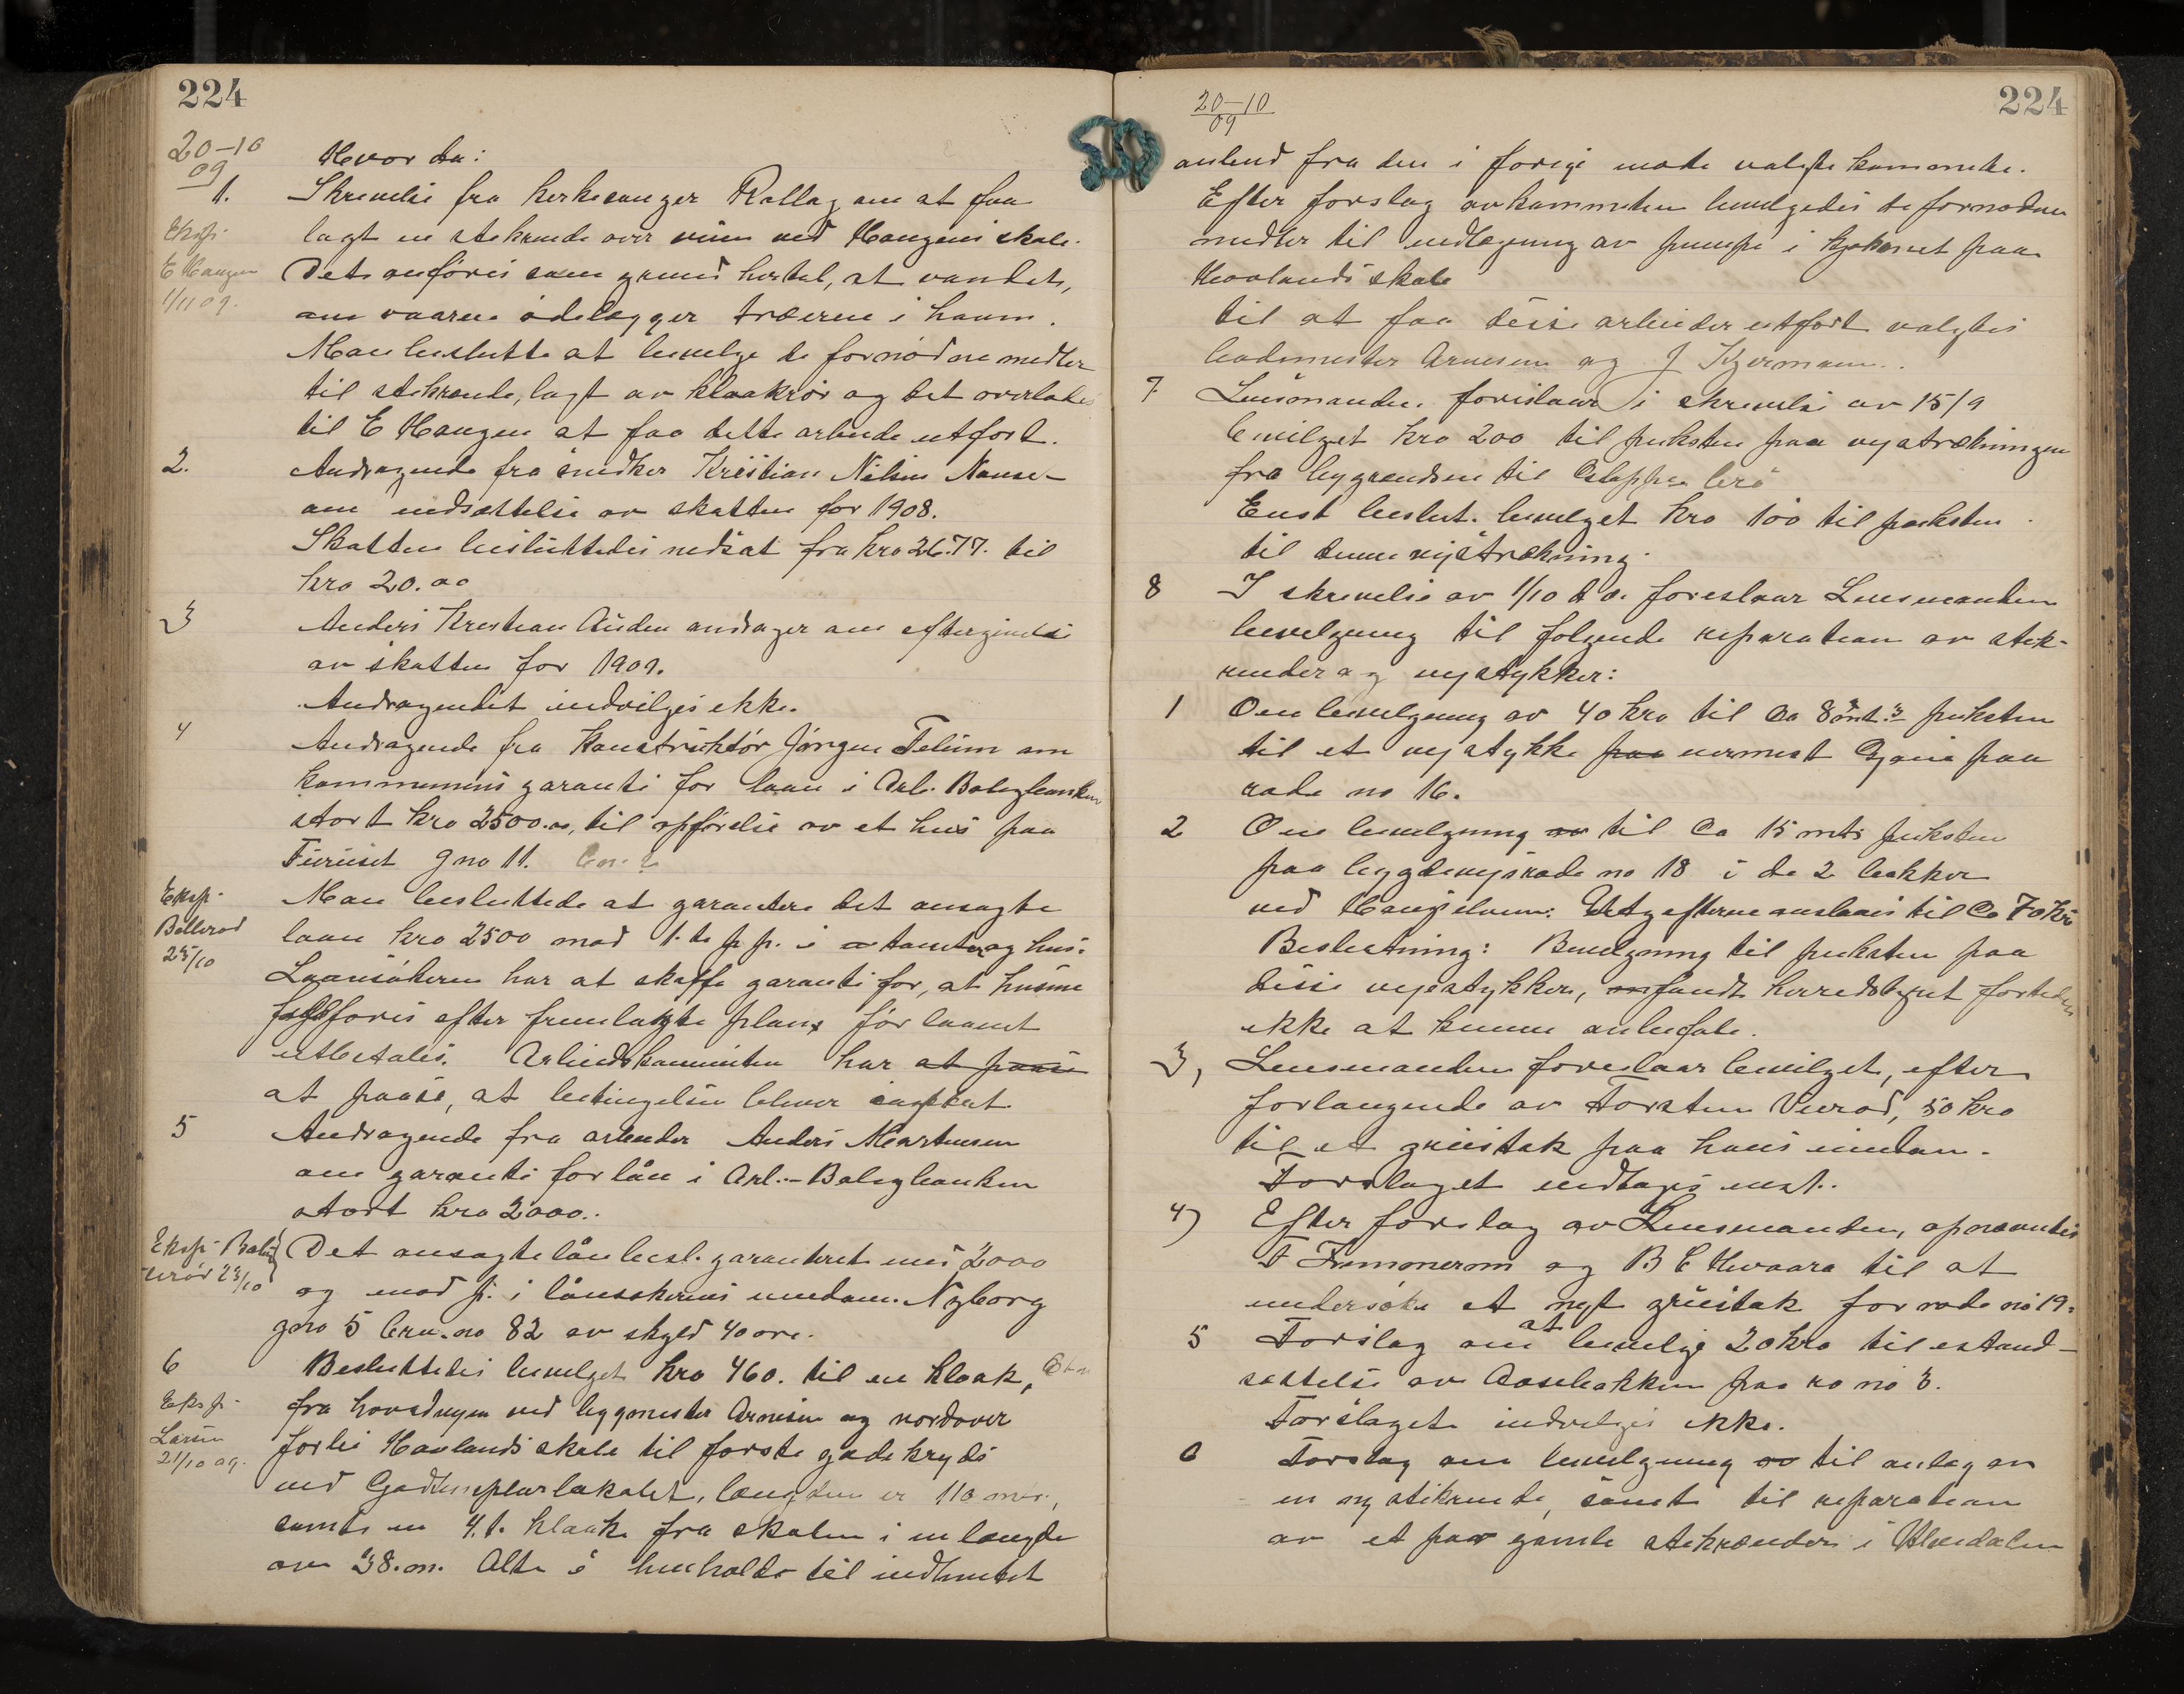 224
20-10
09
Hvor da:
1. Skrivelse fra kirkesanger Rollag om at faa
Eksp.
E Haugen
1/11 09.
lagt en stikrende over veien ved Haugens skole.
Det anføres som grund hertil, at vandet,
om vaaren ødelægger træerne i haven.
Man besluttet at bevilge de fornødne midler
til stikrende, lagt av kloakrør og det overlades
til E Haugen at faa dette arbeide utført.
2. Andragende fra snedker Kristian Nilsen Nanse-
om nedsættelse av skatten for 1908.
Skatten besluttedes nedsat fra kro 26.77. til
kro 20.00
3 Anders Kristian Auden andrager om eftergivelse
av skatten for 1909.
Andragendet indvilges ikke.
4 Andragende fra Konstruktør Jørgen Felum om
kommunens garanti for laan i Arb. Boligbanken
stort kro 2500.00, til opførelse av et hus paa
Furuset gno 11.
Eksp.
Bollerød
25/10
Man besluttede at garantere det ansøgte
laan kro 2500 mod 1.te p. p. i tomten og hus.
Laansøkeren har at skaffe garanti for, at husene
opføres efter fremlagte plan, før laanet
utbetales. Arbeidskomiteen har at paase
at paase, at betingelsen blever
5 Andragende fra arbeider Anders Martinsen
om garanti for lån i Arb.-Boligbanken
stort kro 2000..
Eksp.
23/10
Det ansøgte lån besl. garanteret med 2000
og mod p. i lånsøkerens eiendom. Nyborg
gno 5 bru.no 82 av skyld 40 øre.
6 Besluttedes bevilget kro 460. til en kloak,
Eksp.
Larsen
21/10 09.
fra hovedveien ved byggmester Arnesen og nordover
forbi Hovlands skole til første gadekryds
ved Godtemplarlokalet, længden er 110 mtr.,
samt en 4.t. kloak fra skolen i en længde
av 38.m. Alt i henhold til indhentet
20-10
09
224
anbud fra den i forrige møte valgte kommite.
Efter forslag av kommiteen bevilgedes de fornødne
midler til indlægning av pumpe i kjøkenet paa
Hovlands skole
til at faa disse arbeider utført valgtes
Arnesen og J Kjermann.
7 Lensmanden foreslaar i skrivelse av 15/9
bevilget kro 200 til puksten paa veistrækningen
fra bygrendsen til
Enst beslut. bevilget kro 100 til puksten
til denne veistrækning.
8 I skrivelse av 1/10 d a. foreslaar Lensmanden
bevilgning til følgende reparation av stik-
render og veistykker:
1 Om bevilgning av 40 kro til ca 8 mt.3 puksten
til et veistykke paa nærmest Gjøne paa
rode no 16.
2 Om bevilgning av til ca 15 mt3 puksten
paa bygdeveisrode no 18 i de 2 bakker
ved Utgifterne anslaaes til ca 70 kr
Beslutning: Bevilgning til puksten paa
disse veistykker, fandt herredstyret fortiden
ikke at kunne anbefale.
3, Lensmanden foreslaar bevilget, efter
forlangende av Torsten Virød, 50 kro
til et grustak paa hans eiendom.
Forslaget vedtages enst.
4) Efter forslag av Lensmanden, opnævntes
F Frimmerom og B E Hvaara til at
undersøke et nyt grustak for rode no 19.
5 Forslag om at bevilge 20 kro til istand-
sættelse av Aasebakken paa ro no 3.
Forslaget indvilges ikke.
6 Forslag om bevilgning av til anlæg av
en ny stikrende, samt til reparation
av et par gamle stikrender i